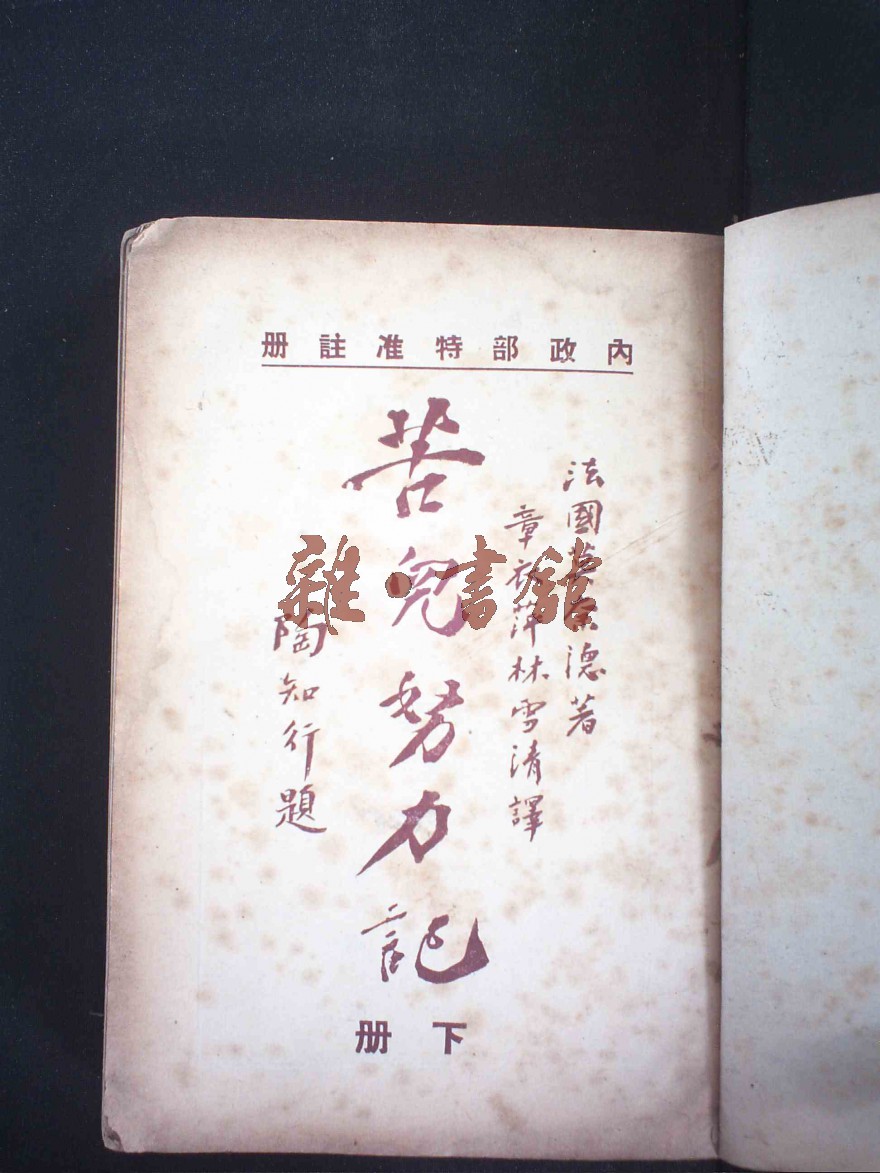 內政部特准註冊
法國 德著
章衣萍林雪清譯
苦兒努力記
陶知行題
下冊
雜·書館